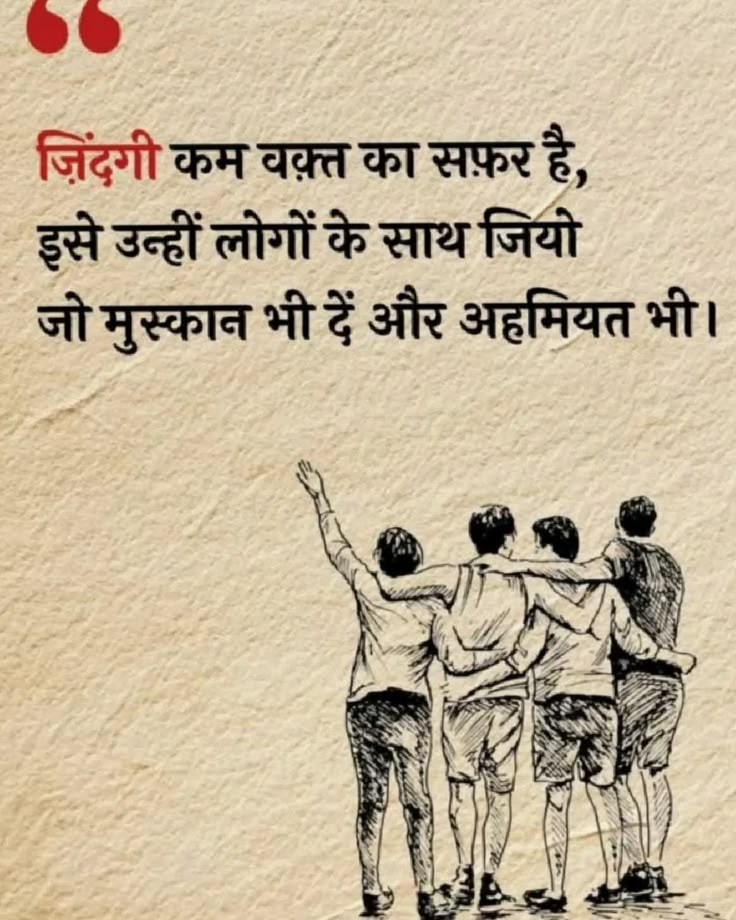 “
ज़िंदगी कम वक़्त का सफ़र है,
इसे उन्हीं लोगों के साथ जियो
जो मुस्कान भी दें और अहमियत भी।